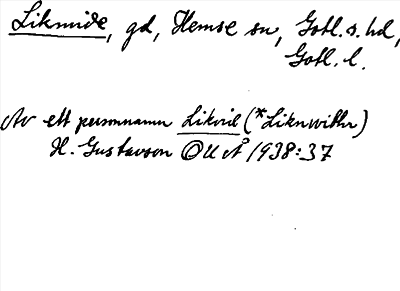 Likmide, gd, Hemse sn, Gotl. s. hd,
Gotl. l.
Av ett personnamn Likvid (*Liknwithr)
H. Gustavson OUÅ 1938:37